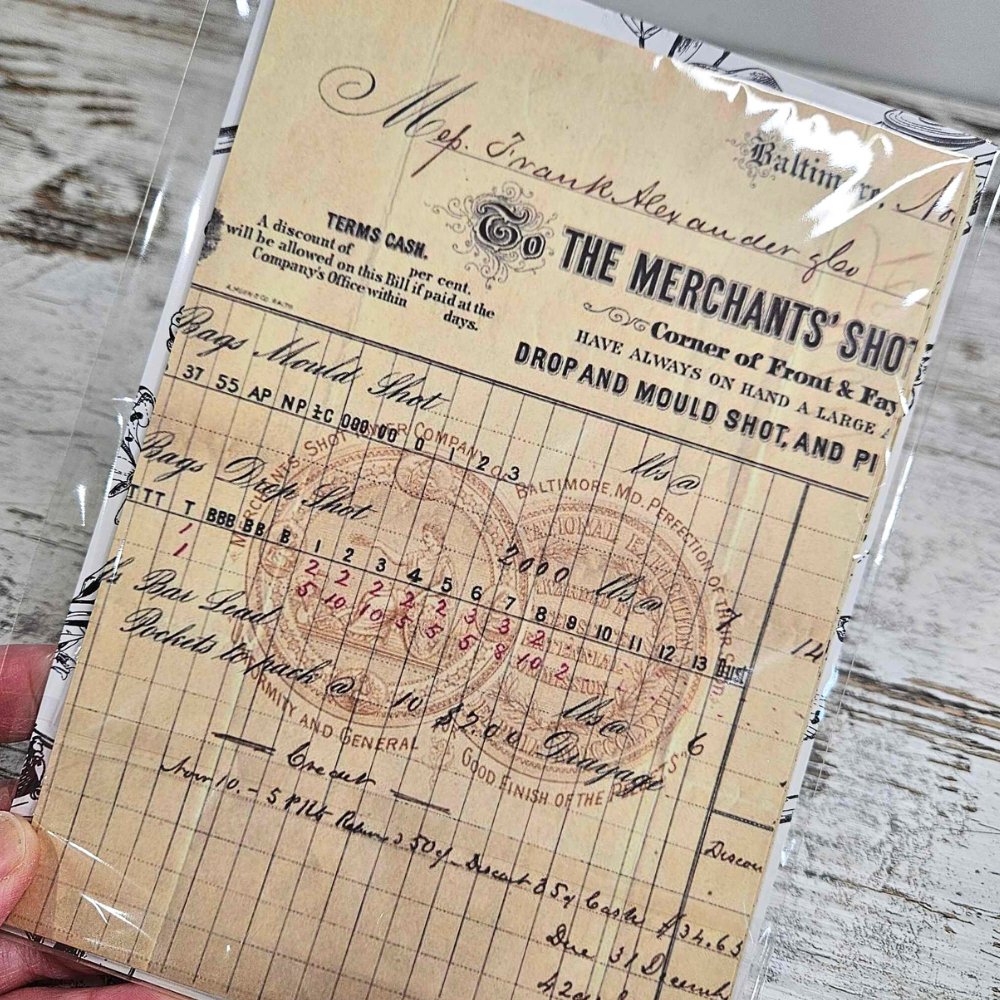 Baltimore, No.
Mep. Frank Alexander & Co
TERMS CASH.
A discount of per cent.
will be allowed on this Bill if paid at the
Company's Office within days.
To THE MERCHANTS' SHOT
Corner of Front & Fay
HAVE ALWAYS ON HAND A LARGE
DROP AND MOULD SHOT, AND PI
Bags Mould Shot lbs @
37 55 AP NP 000 00 0 2 3
MERCHANTS SHOT TOWER COMPANY
BALTIMORE, MD. PERFECTION OF
Bags Drop Shot 2000 lbs @ 7 14
TTT T BBB BB B 1 2 3 4 5 6 7 8 9 10 11 12 13 Dust
1 2 2 2 2 2 3 3 2
1 5 10 10 5 5 5 8 10 2
Bar Lead lbs @ 6
Pockets to pack @ 10 $2.00 Drayage
AND GENERAL
GOOD FINISH OF THE
Credit
Nov 10. - 5
Discou
Cash $34.65
Due 31 Decemb